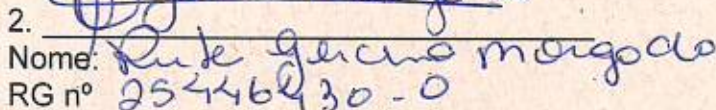 2.
Nome: Rute Morgado
RG nº 25446430-0